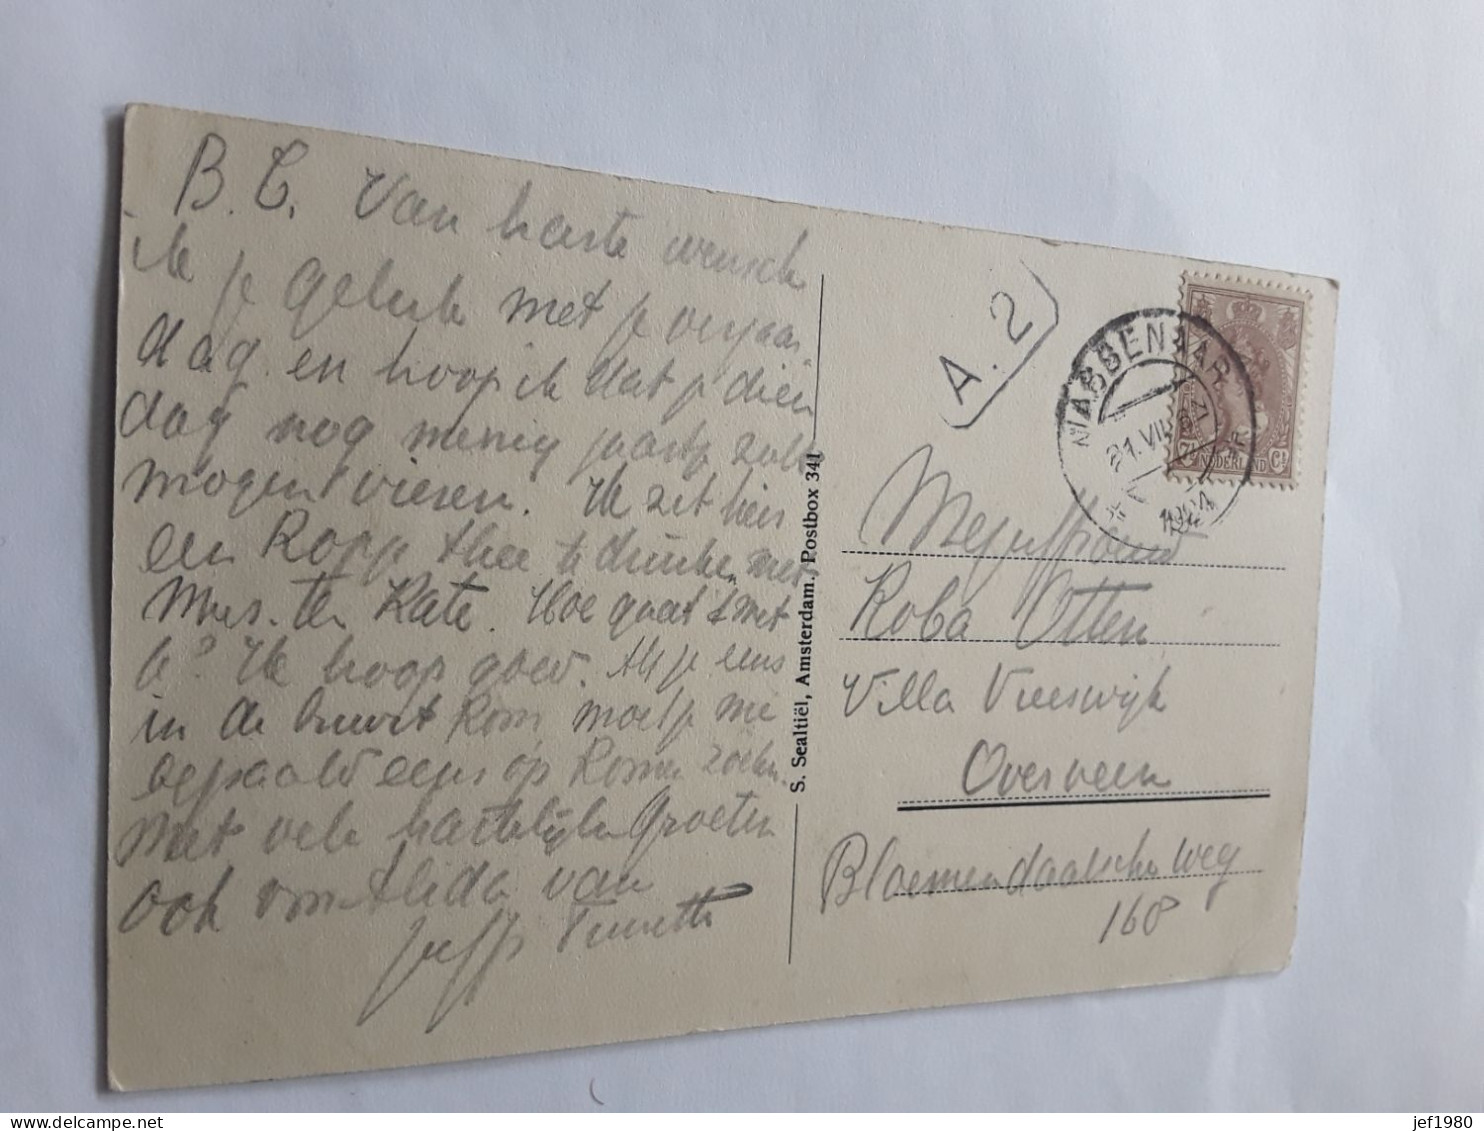 B. C. Van harte wensch
ik je geluk met je verjaar-
dag en hoop ik dat je dien
dag nog menig jaartje zult
mogen vieren. Ik zit hier
een kopje thee te drinken met
Mevr. ten Kate. Hoe gaat 't met
je? Ik hoop goed. Als je eens
in de buurt kom moet je me
bepaald eens op komen zoeken.
Met vele hartelijke Groeten
ook van Alida van
Juffr.
S. Sealtiël, Amsterdam. Postbox 341
A. 2
WABBENAAR
1924
NEDERLAND
Mejuffrouw
Koba Otten
Villa Vreeswijk
Overveen
Bloemendaalsche weg
168
jef1980
delcampe.net